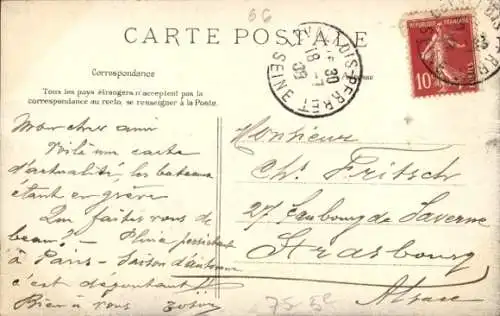 66
CARTE POSTALE
Correspondance
Tous les pays étrangers n'acceptent pas la
correspondance au recto, se renseigner à la Poste.
LEVALLOIS-PERRET
18 -7
09
SEINE
RÉPUBLIQUE FRANÇAISE
10
POSTES
Mon cher ami
Voilà une carte
d'actualité, les bateaux
étant en grève
Que faites vous de
beau? - Pluie persistant
à Paris - Saison d'automne
c'est dégoutant!
Bien à vous
Monsieur
Ch. Fritsch
27 Faubourg de Saverne
Strasbourg
Alsace
75